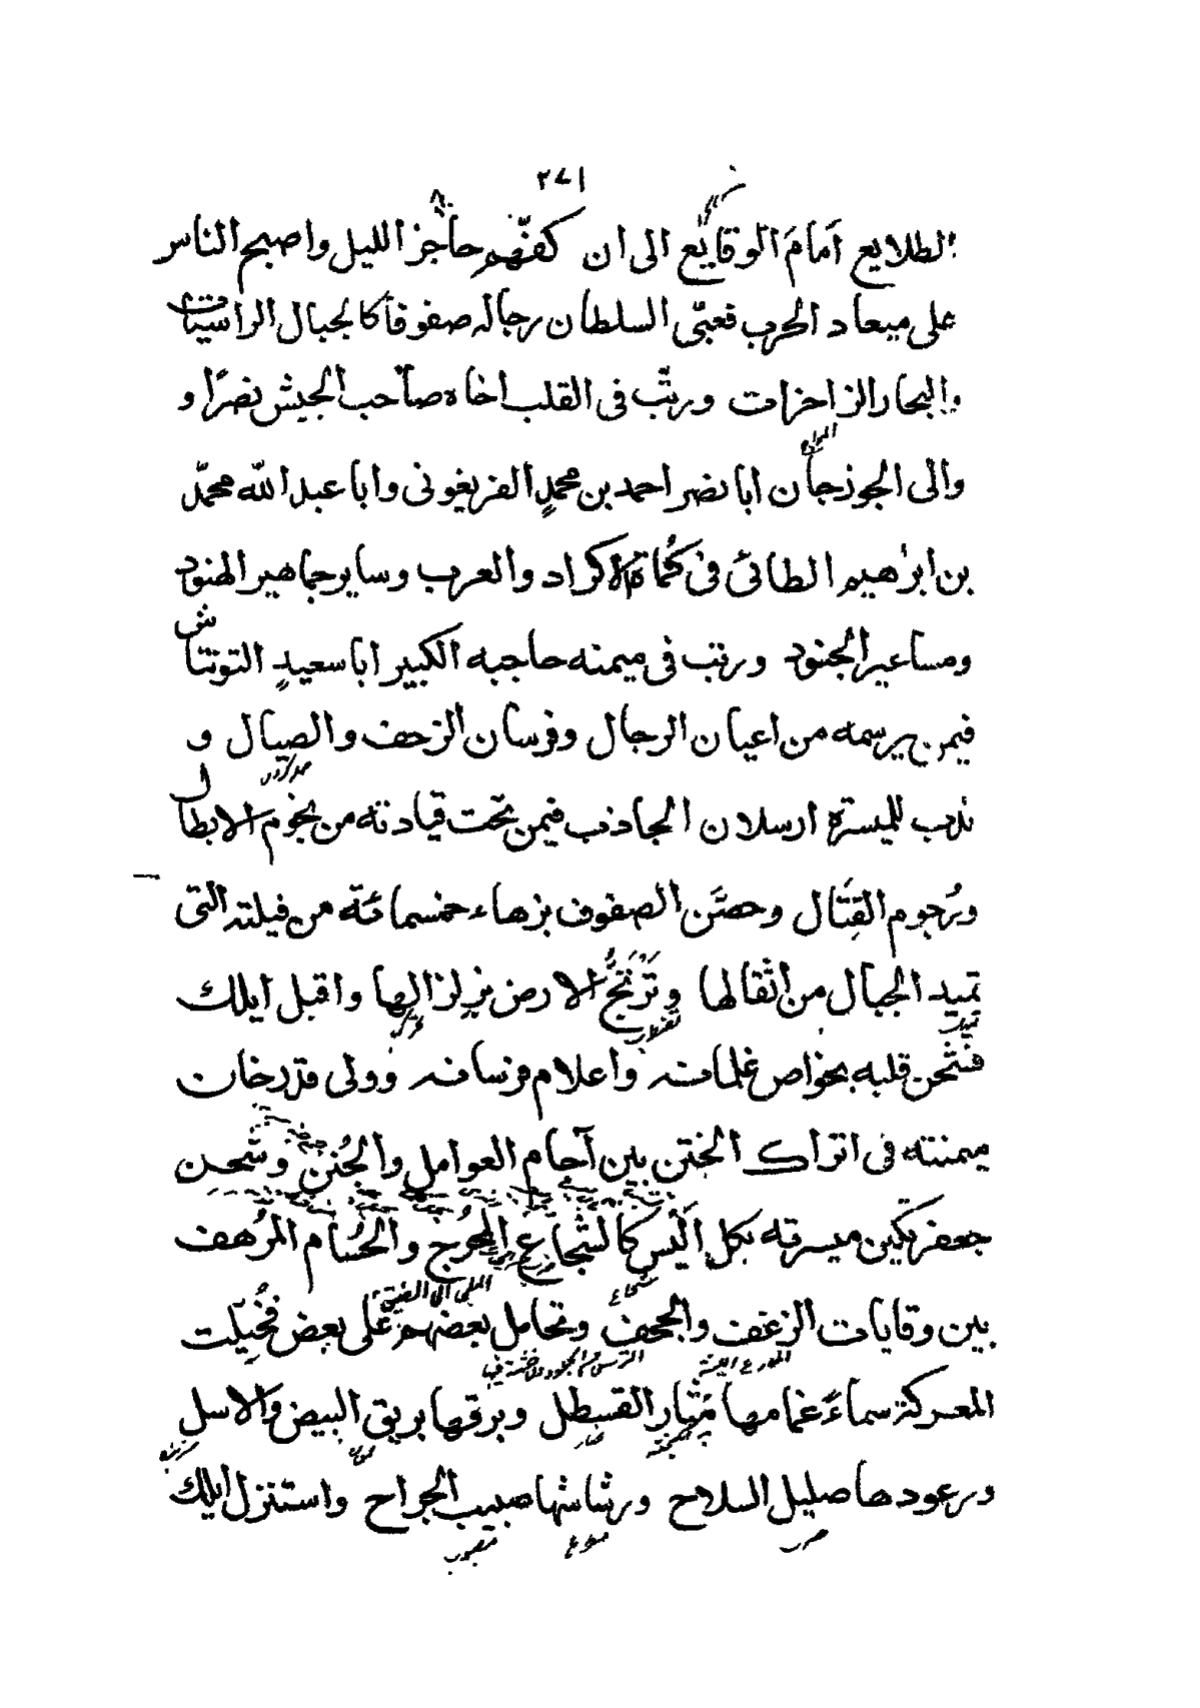 ٢٧١
الطلايع أمامَ الوقايع الى ان كفّهم حاجز الليل واصبح الناس
على ميعاد الحرب فعبّى السلطان رجاله صفوفاً كالجبال الراسيات
والبحار الزاخرات ورتّب فى القلب اخاه صاحب الجيش نصرًا و
والى الجوزجان ابا نصر احمد بن محمدٍ الفريغونى وابا عبد الله محمّد
بن ابرٰهيم الطائى فى كُماة الاكراد والعرب وساير جماهير الهنود
ومساعير الجنود ورتب فى ميمنه حاجبه الكبير ابا سعيدٍ التونتاش
فيمن يرسمه من اعيان الرجال وفرسان الزحف والصيال و
ندب للميسرة ارسلان الجاذب فيمن تحت قيادته من نجوم الابطال
ورُجوم القِتَال وحصَّن الصفوف بزهاء خمسمائة من فيلته التى
تميد الجبال من اثقالها وتَرْتَجُّ الارض بزلزالها واقبل ايلك
فشحن قلبه بخواص غلمانه واعلام فرسانه وولى قدرخان
ميمنته فى اتراك الختن بين آجام العوامل والجُنن وشحن
جعفر تكين ميسرته بكل اَلْيس كالشجاع المُحرج والحُسام المُرهف
بين وقايات الزغف والجحف وتحامل بعضهم على بعض فخُيلت
المعركة سماءً غمامها مَثار القسطل وبرقها بريق البيض والاسل
ورعودها صليل السلاح ورشاشها صبيب الجراح واستنزل ايلك